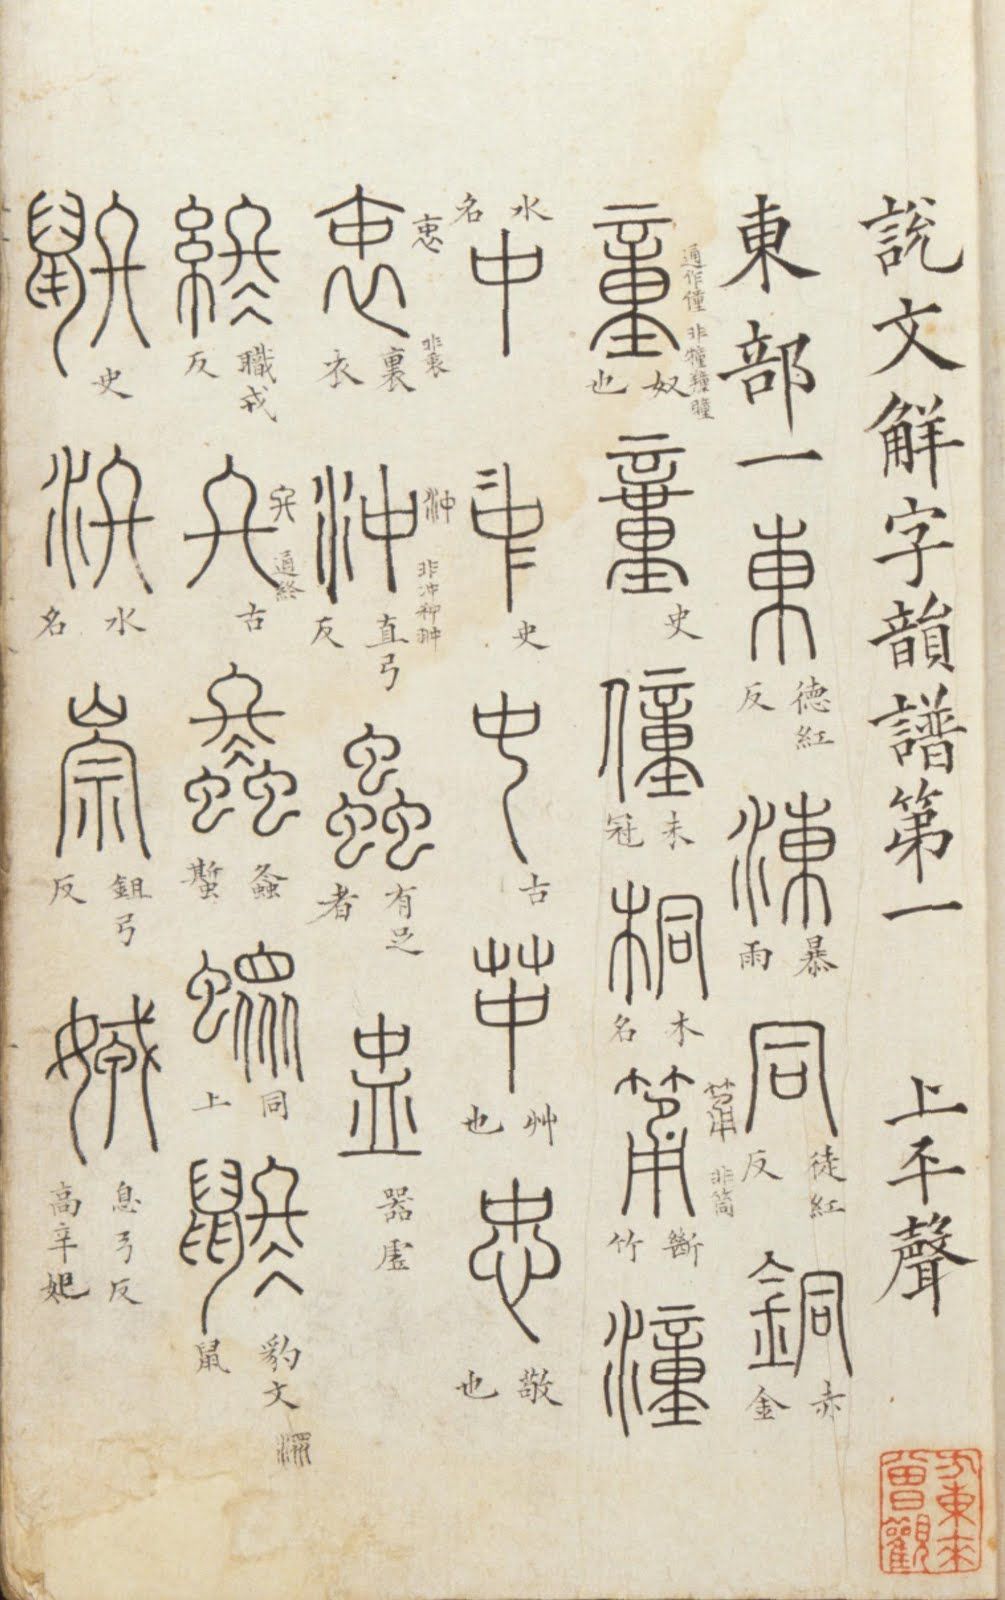 說文解字韻譜第一 上平聲
東部一 東 德紅反 涷 暴雨 同 徒紅反 銅 赤金
童 奴也 通作僮 童 史 僮 未冠 桐 木名 筩 斷竹 非筒 潼
水名 中 𠁧 史 𠁩 古 苹 艸也 忠 敬也
衷 裏衣 非衷 沖 直弓反 沖 蟲 有足者 盅 器虛
終 職戎反 夂 古 通終 螽 螽蝗 𧑄 同上 鼨 豹文鼠
鼨 史 泈 水名 崇 鉏弓反 娀 息弓反 高辛妃
方東來曾觀